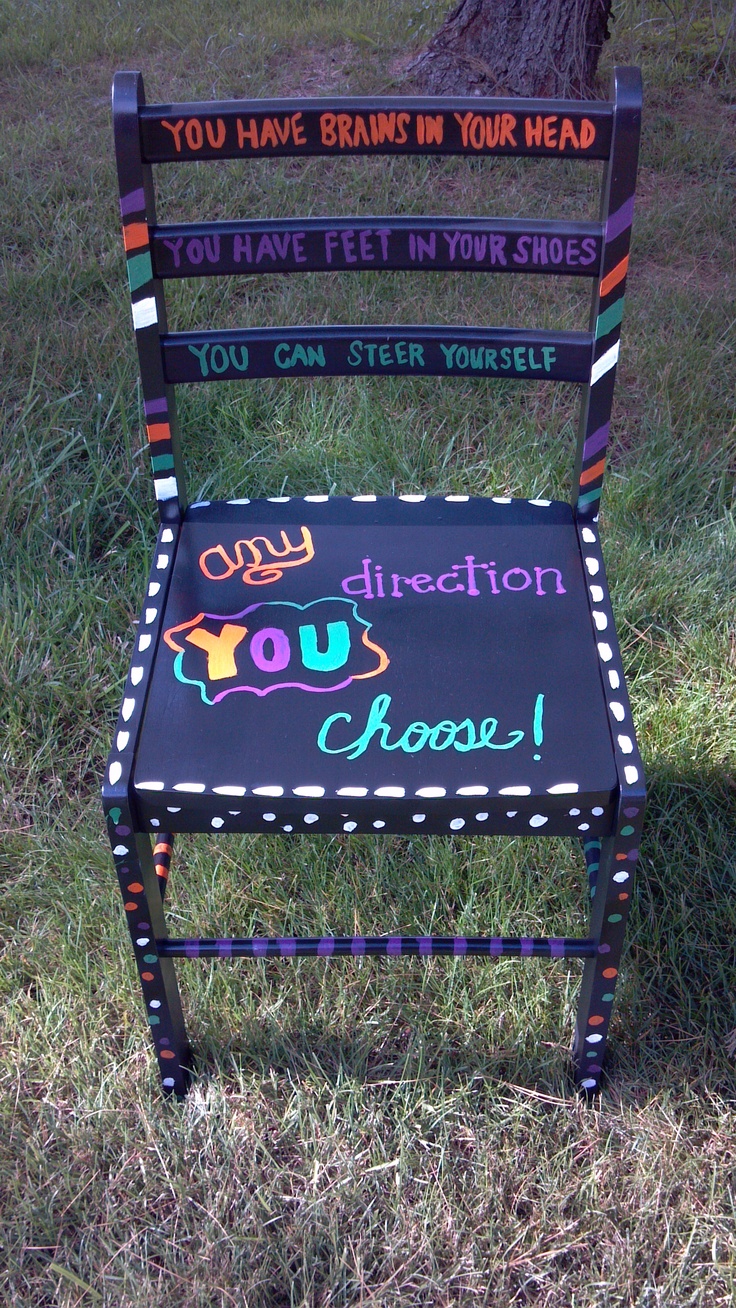 YOU HAVE BRAINS IN YOUR HEAD
YOU HAVE FEET IN YOUR SHOES
YOU CAN STEER YOURSELF
any
direction
YOU
choose!